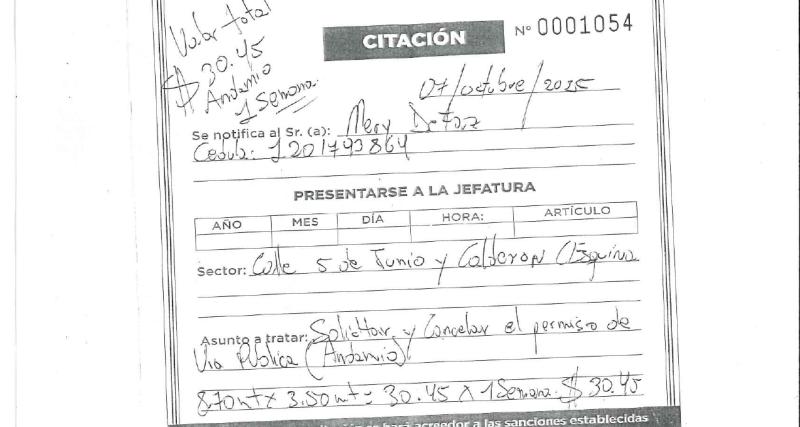 Valor total
$ 30.45
Andamio
1 Semana.
CITACIÓN
N° 0001054
07/octubre/2025
Se notifica al Sr. (a): Mery De Faz
Cedula: 1201793864
PRESENTARSE A LA JEFATURA
AÑO MES DÍA HORA: ARTÍCULO
Sector: Calle 5 de Junio y Calderon (Esquina
Asunto a tratar: Solicitar y Cancelar el permiso de
Via Publica (Andamio)
8.70mt x 3.50mt = 30.45 x 1 Semana. $ 30.45
acreedor a las sanciones establecidas